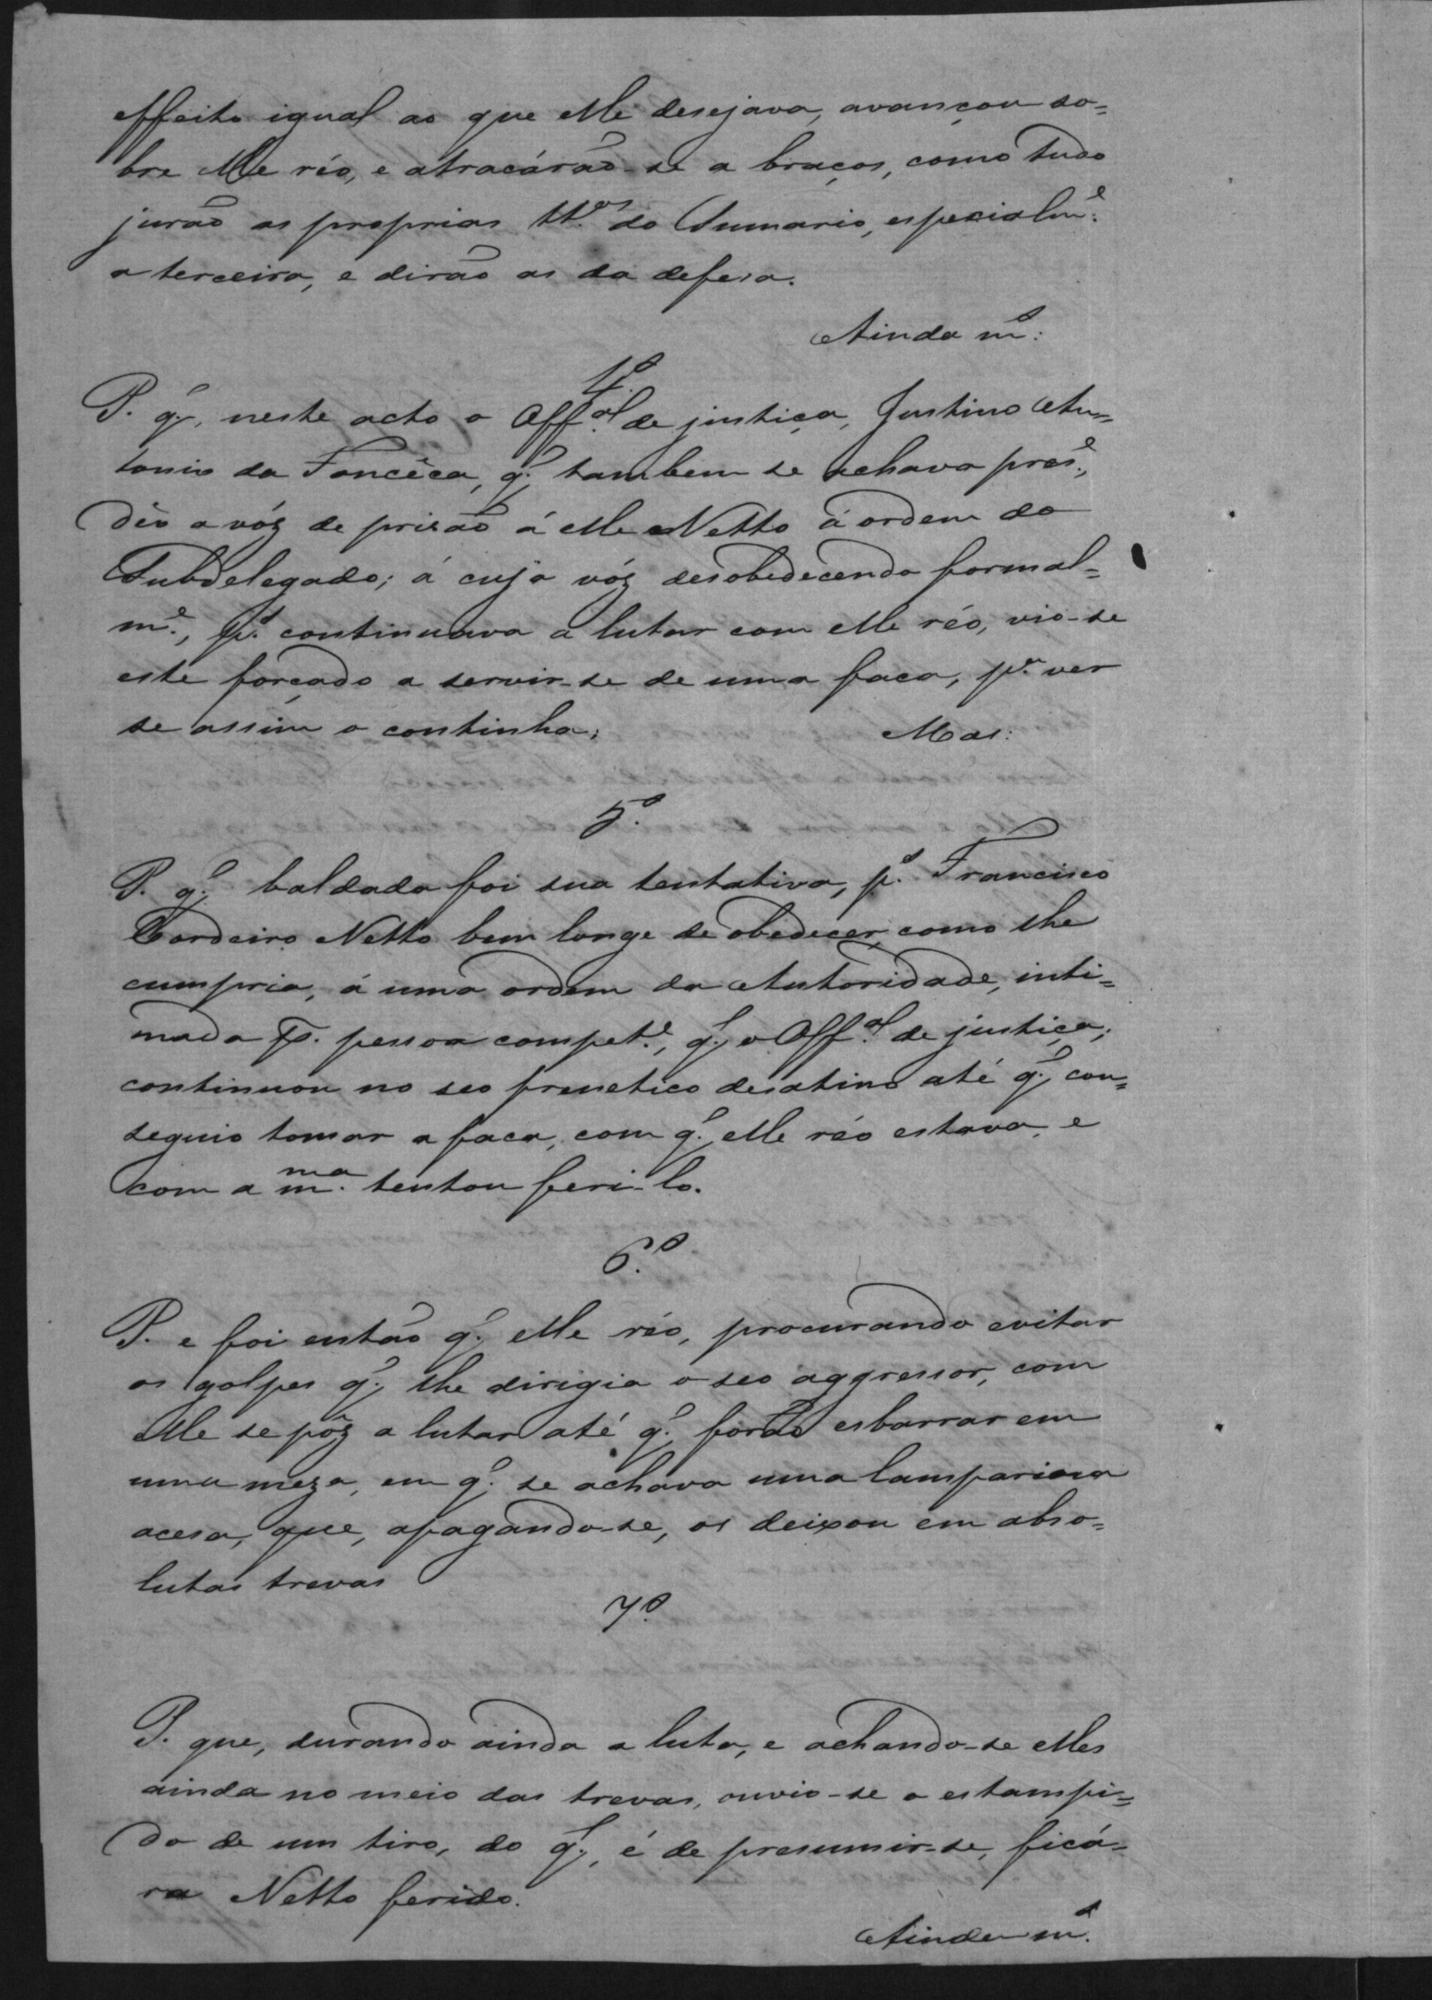 effeito igual ao que elle desejava, avançou so=
bre elle réo, e atracárão-se a braços, como tudo
jurão as proprias tt.as do Summario, especialm.e
a terceira, e dirão as da defesa.
Ainda m.s:
4.o
P. q., neste acto o Off.al de justiça, Justino An=
tonio da Foncêca, q. tambem se achava pres.e,
dêo a vóz de prisão á elle Netto á ordem do
Subdelegado; á cuja vóz desobedecendo formal=
m.e, p.s continuava a lutar com elle réo, vio-se
este forçado a servir-se de uma faca, p.a ver
se assim o continha;
Mas:
5.o
P. q. baldada foi sua tentativa, p.s Francisco
Cordeiro Netto bem longe de obedecer, como lhe
cumpria, á uma ordem da Autoridade, inti=
mada p. pessoa compet.e, q. o Off.al de justiça;
continuou no seo frenetico desatino até q. con=
seguio tomar a faca, com q. elle réo estava, e
com a m.ma tentou feri-lo.
6.o
P. e foi então q. elle réo, procurando evitar
os golpes q. lhe dirigia o seo aggressor, com
elle se pôz a lutar até q. forão esbarrar em
uma meza, em q. se achava uma lamparina
acesa, que, apagando-se, os deixou em abso=
lutas trevas
7.o
P. que, durando ainda a luta, e achando-se elles
ainda no meio das trevas, ouvio-se o estampi=
do de um tiro, do q., é de presumir-se, ficá=
ra Netto ferido.
Ainda m.s